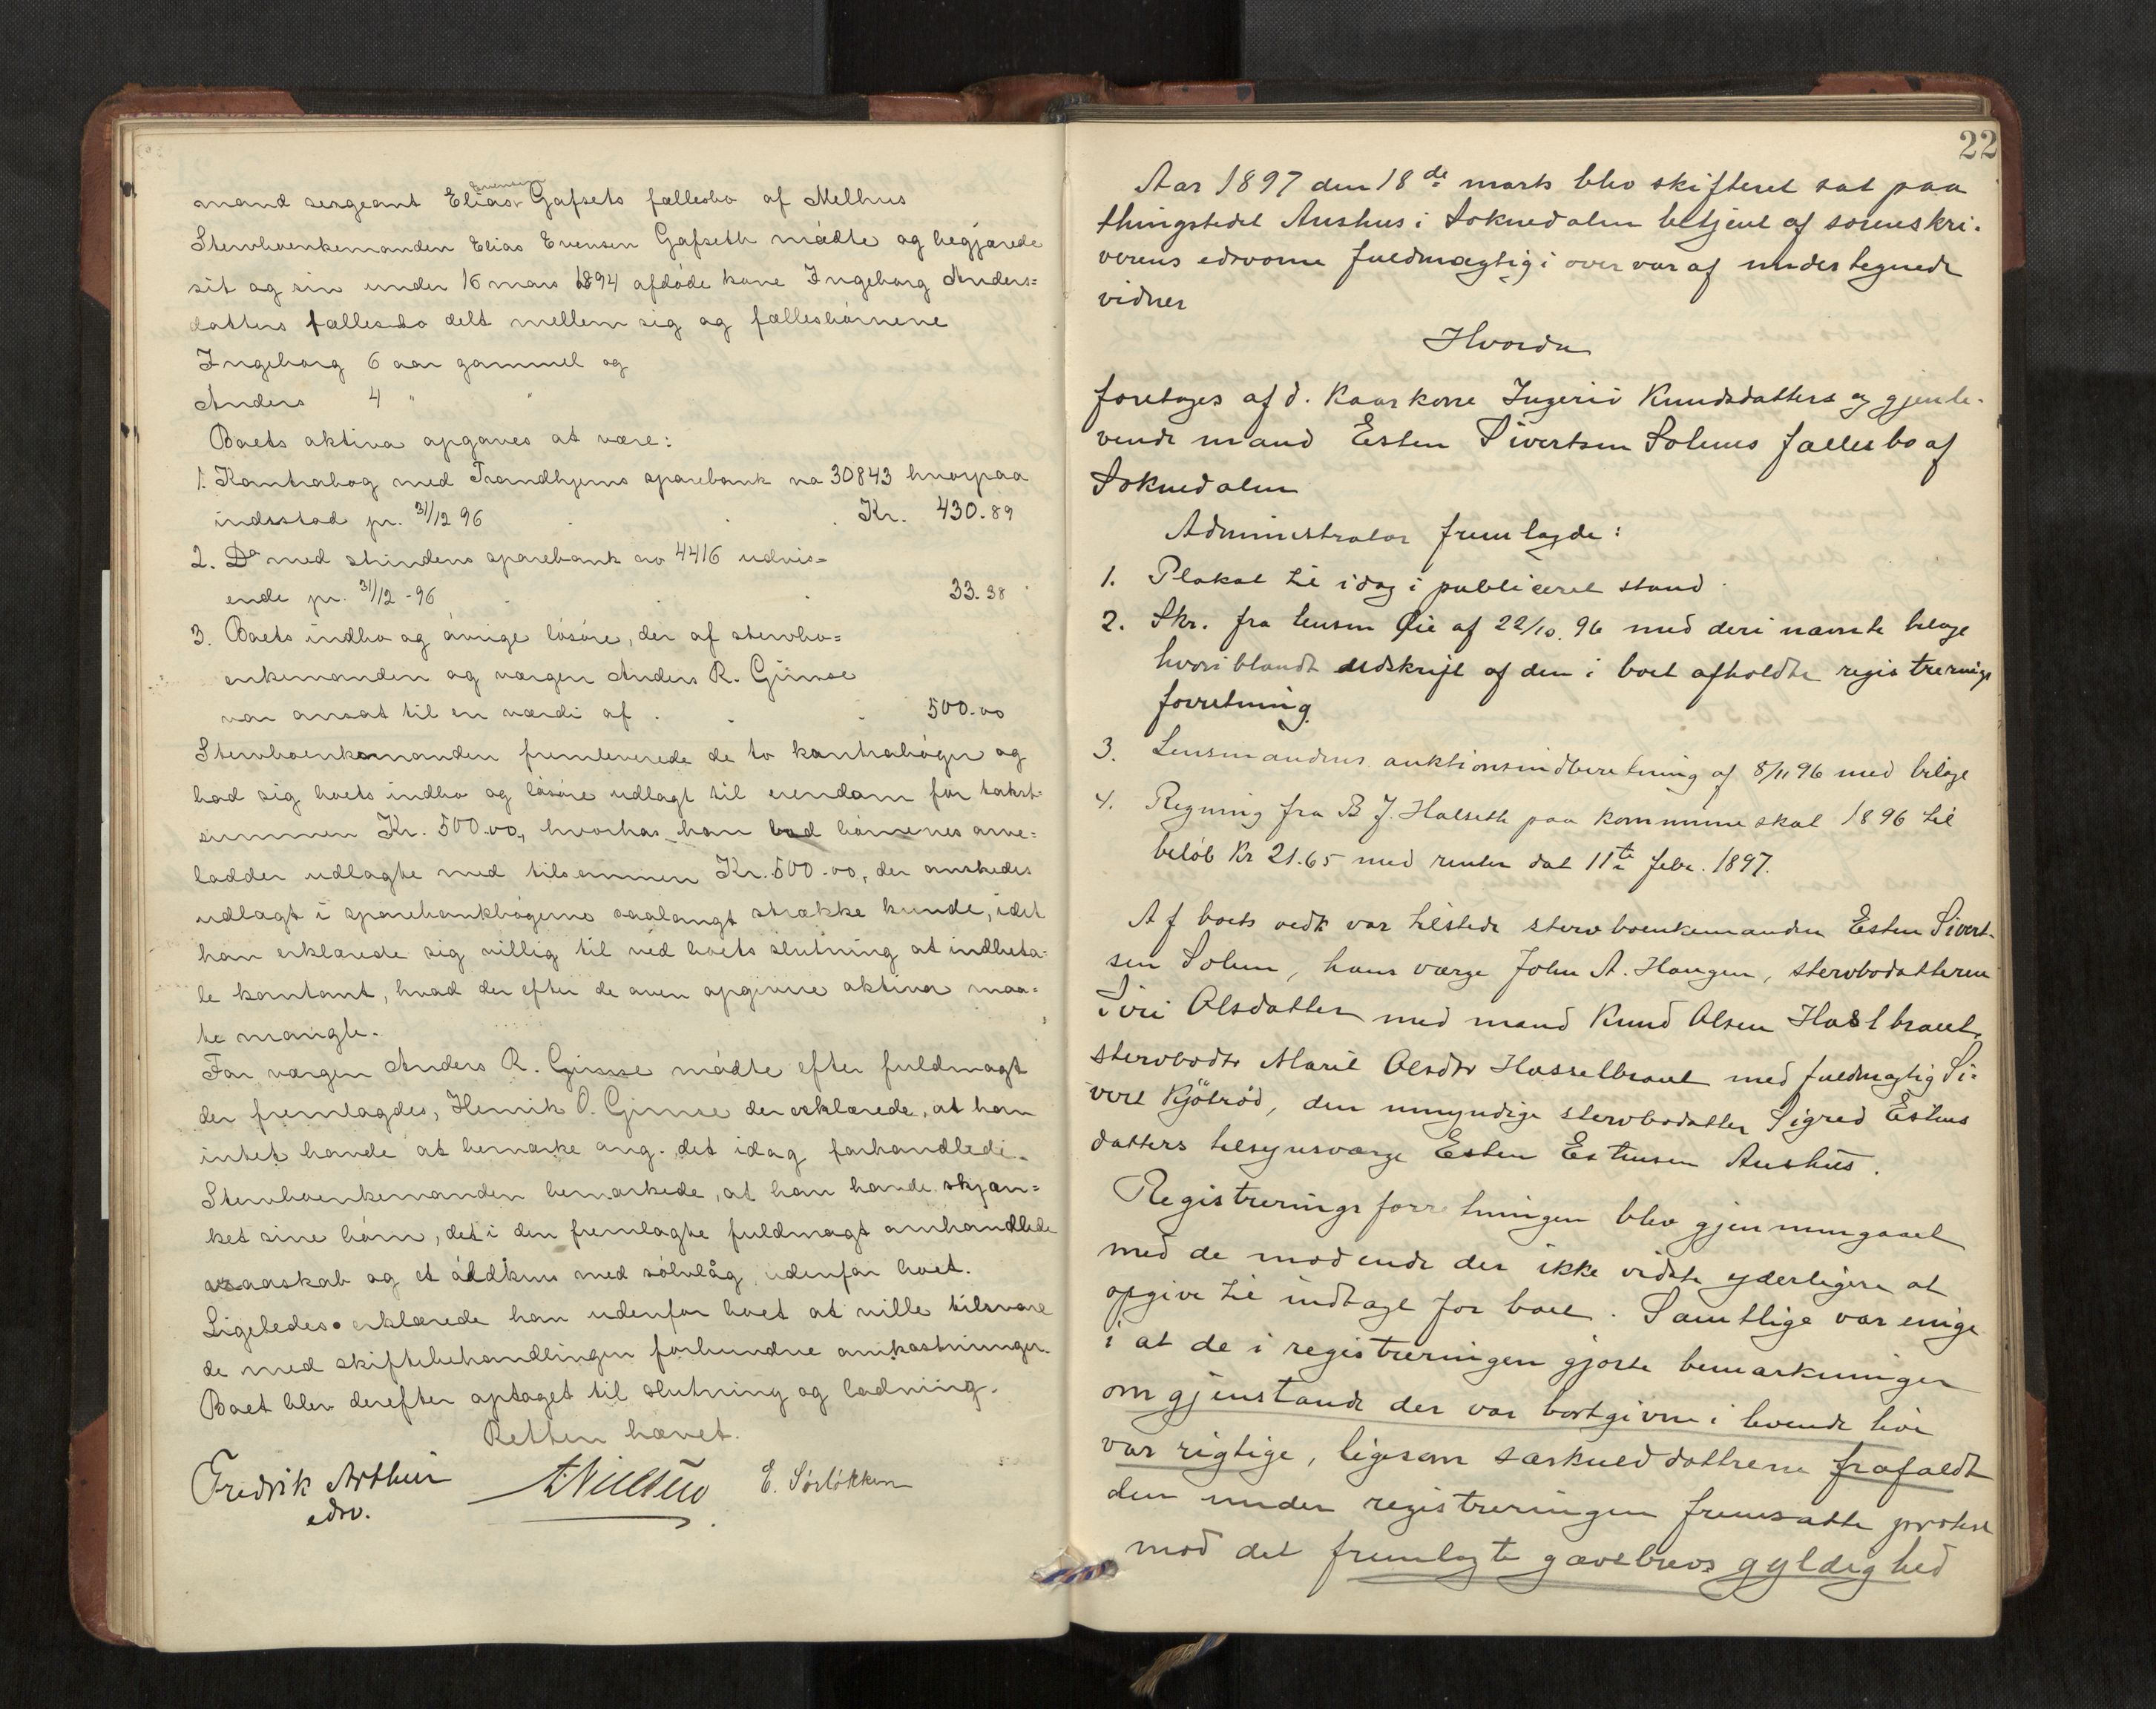 mand sergeant Elias Evensen Gafsets fællesbo af Melhus
Stervboenkemanden Elias Evensen Gafseth mødte og begjærede
sit og sin under 16 mars 1894 afdøde kone Ingeborg Anders=
datters fællesbo delt mellem sig og fællesbørnene
Ingeborg 6 aar gammel og
Anders 4 " "
Boets aktiva opgaves at være:
1. Kontrabog med Trondhjems sparebank no 30843 hvorpaa
indestod pr. 31/12 96 . . . Kr. 430.89
2. Do med strindens sparebank no 4416 udvis=
ende pr. 31/12 - 96 . . . 33.38
3. Boets indbo og øvrige løsøre, der af stervbo=
enkemanden og værgen Anders R. Gimse
var ansat til en værdi af . . . 500.00
Stervboenkemanden fremleverede de to kontrabøger og
bad sig boets indbo og løsøre udlagt til eiendom for takst-
summen Kr. 500.00, hvorhos han bad børnenes arve=
lodder udlagte med tilsammen Kr. 500.00, der ønskedes
udlagt i sparebankbøgerne saalangt strække kunde, idet
han erklærede sig villig til ved boets slutning at indbeta-
le kontant, hvad der efter de oven opgivne aktiva maa=
te mangle.
For værgen Anders R. Gimse mødte efter fuldmagt
der fremlagdes, Henrik O. Gimse der erklærede, at han
intet havde at bemærke ang. det idag forhandlede.
Stervboenkemanden bemærkede, at han havde skjæn=
ket sine børn, det i den fremlagte fuldmagt omhandlede
skab og et øldkrus med sølvlåg udenfor boet.
Ligeledes erklærede han udenfor boet at ville tilsvare
de med skiftebehandlingen forbundne omkostninger.
Boet blev derefter optaget til slutning og lodning.
Retten hævet.
Fredrik Arthur A. Nielsen E. Sørløkken
edsv.
22
Aar 1897 den 18de marts blev skifteret sat paa
thingstedet Aushus i Soknedalen betjent af sorenskri-
verens edsvorne fuldmægtig i overvær af undertegnede
vidner
Hvorda
foretoges afd. kaarkone Ingerid Knudsdatters og gjenle-
vende mand Esten Sivertsen Solems fællesbo af
Soknedalen
Administrator fremlagde:
1. Plakat til idag i publiceret stand.
2. Skr. fra lensm Øie af 22/10. 96 med deri nævnte bilage
hvoriblandt udskrift af den i boet afholdte registrerings
forretning.
3. Lensmandens auktionsindberetning af 8/11 96 med bilage
4. Regning fra B J. Halseth paa kommuneskat 1896 til
beløb Kr 21.65 med renter dat 11te febr. 1897.
Af boets vedk var tilstede stervboenkemanden Esten Sivert-
sen Solem, hans værge John A. Haugen, stervbodatteren
Siri Olsdatter med mand Knud Olsen Haslbraut,
stervbodtr Marit Olsdtr Hasselbraut med fuldmægtig Si-
vert Kjøtrød, den umyndige stervbodatter Sigred Estens
datters tilsynsværge Esten Estensen Aushus.
Registreringsforretningen blev gjennemgaaet
med de mødende der ikke vidste yderligere at
opgive til indtægt for boet. Samtlige var enige
i at de i registreringen gjorte bemærkninger
om gjenstande der var bortgivne i levende live
var rigtige, ligesom særkulddøttrene frafaldt
den under registreringen fremsatte protest
mod det fremlagte gavebrevs gyldighed